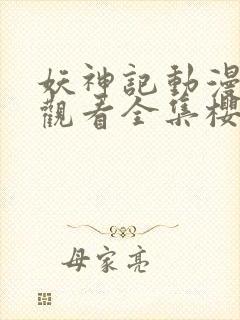 妖神記動漫
觀看全集櫻
母家亮